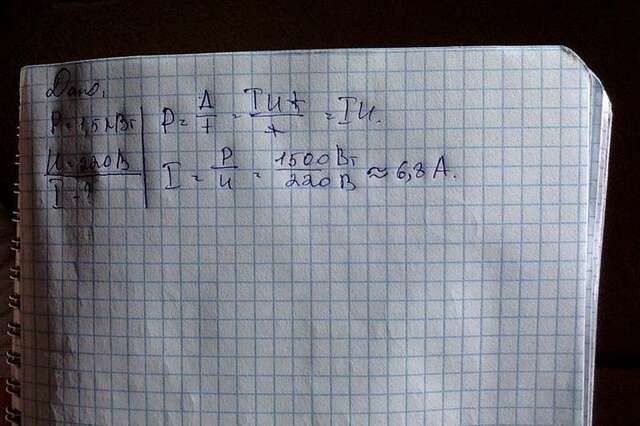 Дано:
P=1,5кВт
U=220В
I-?
P = A/t = IUt/t = IU.
I = P/U = 1500Вт/220В ≈ 6,8 А.